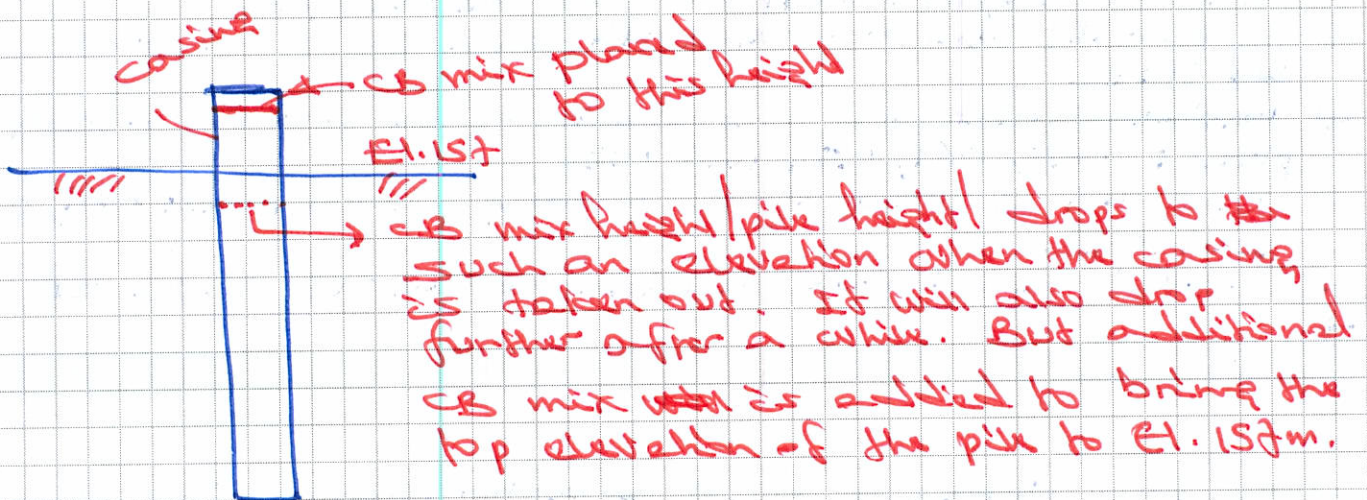 casing
CB mix placed
to this height
El. 157
CB mix height/pile height drops to
such an elevation when the casing
is taken out. It will also drop
further after a while. But additional
CB mix is added to bring the
top elevation of the pile to El. 157m.